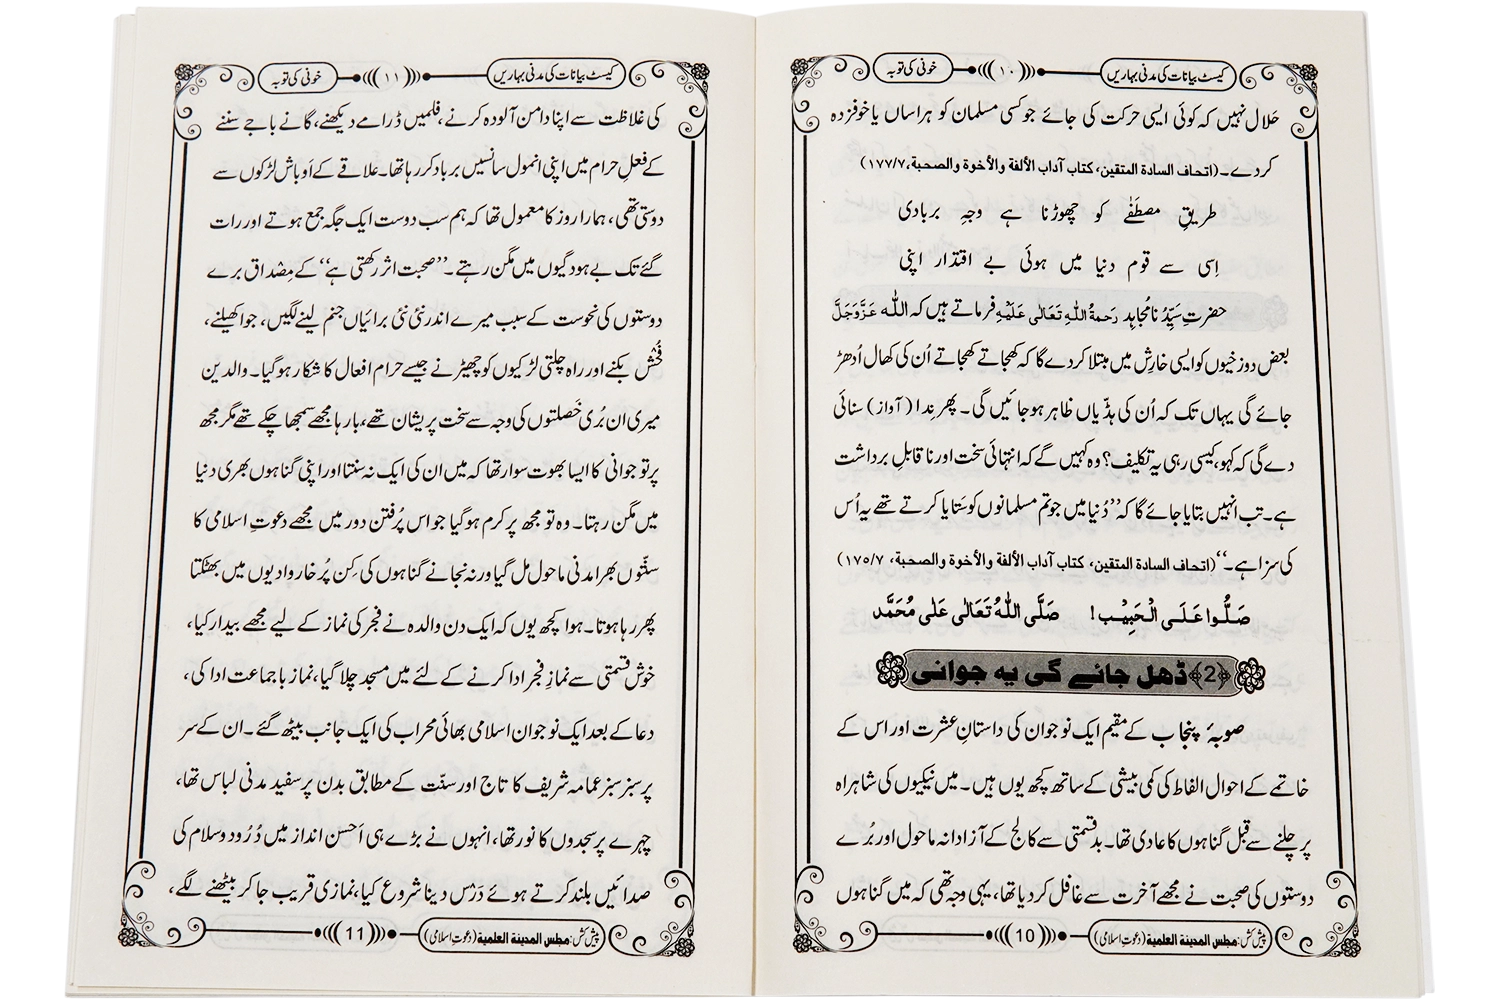 کیسٹ بیانات کی مدنی بہاریں
۱۰
خونی کی توبہ
حَلال نہیں کہ کوئی ایسی حرکت کی جائے جو کسی مسلمان کو ہراساں یا خوفزدہ
کردے۔ (اتحاف السادة المتقین، کتاب آداب الألفة والأخوة والصحبة، ۱۷۷/۷)
طریقِ مصطَفٰے کو چھوڑنا ہے وجہِ بربادی
اِسی سے قوم دنیا میں ہوئی بے اقتدار اپنی
حضرتِ سیِّدُنا مُجاہِد رَحمَۃُ اللہِ تَعَالٰی عَلَیْہ فرماتے ہیں کہ اللہ عَزَّوَجَلَّ
بعض دوزخیوں کو ایسی خارِش میں مبتلا کر دے گا کہ کھجاتے کھجاتے اُن کی کھال اُدھڑ
جائے گی یہاں تک کہ اُن کی ہڈّیاں ظاہر ہو جائیں گی۔ پھر نِدا (آواز) سنائی
دے گی کہ کہو، کیسی رہی یہ تکلیف؟ وہ کہیں گے کہ انتہائی سخت اور ناقابلِ برداشت
ہے۔ تب انہیں بتایا جائے گا کہ ’’دُنیا میں جو تم مسلمانوں کو ستایا کرتے تھے یہ اُس
کی سزا ہے۔‘‘ (اتحاف السادة المتقین، کتاب آداب الألفة والأخوة والصحبة، ۱۷۵/۷)
صَلُّوا عَلَی الْحَبِیْب! صَلَّی اللہُ تَعَالٰی عَلٰی مُحَمَّد
﴿2﴾ ڈھل جائے گی یہ جوانی
صوبۂ پنجاب کے مقیم ایک نوجوان کی داستانِ عشرت اور اس کے
خاتمے کے احوال الفاط کی کمی بیشی کے ساتھ کچھ یوں ہیں۔ میں نیکیوں کی شاہراہ
پر چلنے سے قبل گناہوں کا عادی تھا۔ بدقسمتی سے کالج کے آزادانہ ماحول اور بُرے
دوستوں کی صحبت نے مجھے آخرت سے غافل کر دیا تھا، یہی وجہ تھی کہ میں گناہوں
پیش کش: مجلس المدینة العلمیة (دعوتِ اسلامی)
10
کیسٹ بیانات کی مدنی بہاریں
۱۱
خونی کی توبہ
کی غلاظت سے اپنا دامن آلودہ کرنے، فلمیں ڈرامے دیکھنے، گانے باجے سننے
کے فعلِ حرام میں اپنی انمول سانسیں برباد کر رہا تھا۔ علاقے کے اَوباش لڑکوں سے
دوستی تھی، ہمارا روز کا معمول تھا کہ ہم سب دوست ایک جگہ جمع ہوتے اور رات
گئے تک بے ہودگیوں میں مگن رہتے۔ ’’صحبت اثر رکھتی ہے‘‘ کے مِصْداق برے
دوستوں کی نحوست کے سبب میرے اندر نئی نئی برائیاں جنم لینے لگیں، جوا کھیلنے،
فُحْش بکنے اور راہ چلتی لڑکیوں کو چھیڑنے جیسے حرام افعال کا شکار ہو گیا۔ والدین
میری ان بُری خَصلتوں کی وجہ سے سخت پریشان تھے، بارہا مجھے سمجھا چکے تھے مگر مجھ
پر تو جوانی کا ایسا بھوت سوار تھا کہ میں ان کی ایک نہ سنتا اور اپنی گناہوں بھری دنیا
میں مگن رہتا۔ وہ تو مجھ پر کرم ہو گیا جو اس پُرفتن دور میں مجھے دعوتِ اسلامی کا
سنّتوں بھرا مدنی ماحول مل گیا ورنہ نجانے گناہوں کی کِن پُرخار وادیوں میں بھٹکتا
پھر رہا ہوتا۔ ہوا کچھ یوں کہ ایک دن والدہ نے فجر کی نماز کے لیے مجھے بیدار کیا،
خوش قسمتی سے نمازِ فجر ادا کرنے کے لئے میں مسجد چلا گیا، نماز باجماعت ادا کی،
دعا کے بعد ایک نوجوان اسلامی بھائی محراب کی ایک جانب بیٹھ گئے۔ ان کے سر
پر سبز سبز عمامہ شریف کا تاج اور سنّت کے مطابق بدن پر سفید مدنی لباس تھا،
چہرے پر سجدوں کا نور تھا، انہوں نے بڑے ہی اَحسن انداز میں دُرُود و سلام کی
صدائیں بلند کرتے ہوئے دَرْس دینا شروع کیا، نمازی قریب جا کر بیٹھنے لگے،
پیش کش: مجلس المدینة العلمیة (دعوتِ اسلامی)
11